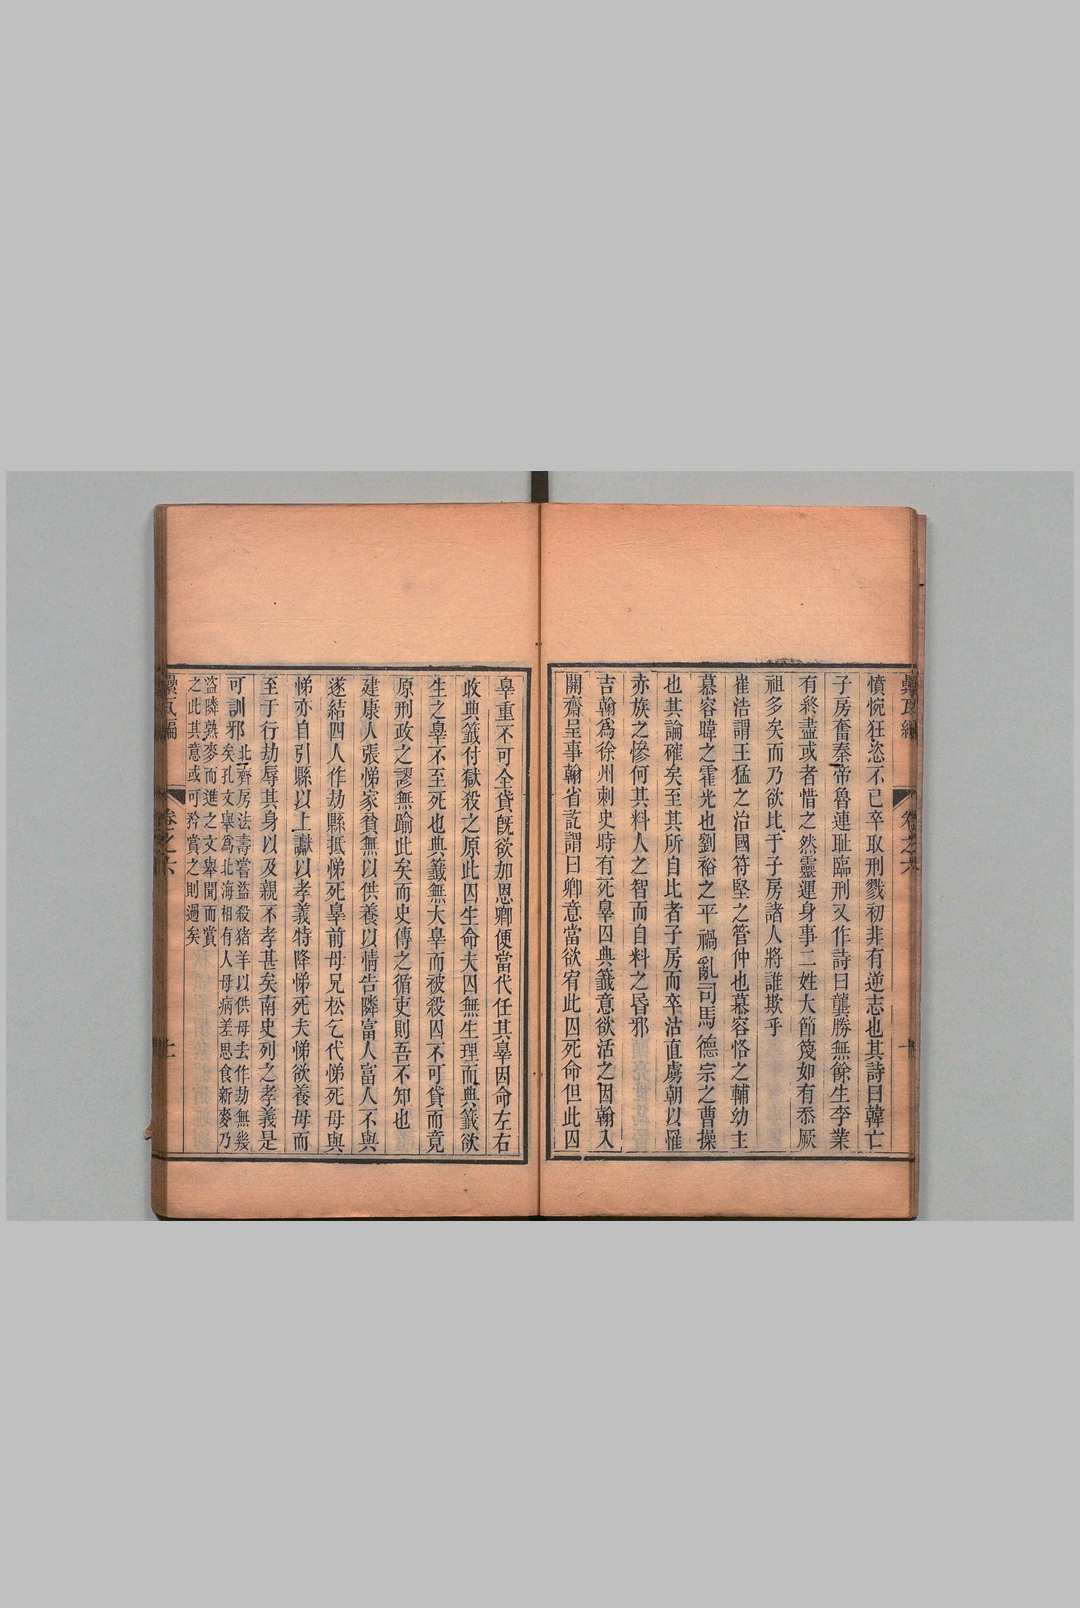 憤惋狂恣不已卒取刑戮初非有逆志也其詩曰韓亡
子房奮秦帝魯連耻臨刑又作詩曰龔勝無餘生李業
有終盡或者惜之然靈運身事二姓大節篾如有忝厥
祖多矣而乃欲比于子房諸人將誰欺乎
崔浩謂王猛之治國符堅之管仲也慕容恪之輔幼主
慕容暐之霍光也劉裕之平禍亂司馬德宗之曹操
也其論確矣至其所自比者子房而卒沽直虜朝以罹
赤族之慘何其料人之智而自料之昏邪
吉翰爲徐州刺史時有死辠囚典籤意欲活之因翰入
開齋呈事翰省訖謂曰卿意當欲宥此囚死命但此囚
辠重不可全貸旣欲加恩卿便當代任其辠因命左右
收典籤付獄殺之原此囚生命夫囚無生理而典籤欲
生之辠不至死也典籤無大辠而被殺囚不可貸而竟
原刑政之謬無踰此矣而史傳之循吏則吾不知也
建康人張悌家貧無以供養以情告隣富人富人不與
遂結四人作劫縣抵悌死辠前母兄松乞代悌死母與
悌亦自引縣以上讞以孝義特降悌死夫悌欲養母而
至于行劫辱其身以及親不孝甚矣南史列之孝義是
可訓邪
北齊房法壽嘗盜殺猪羊以供母去作劫無幾
矣孔文舉爲北海相有人母病差思食新麥乃
盜隣熟麥而進之文舉聞而賞
之此其意或可矜賞之則過矣
卷之六
十
卷之六